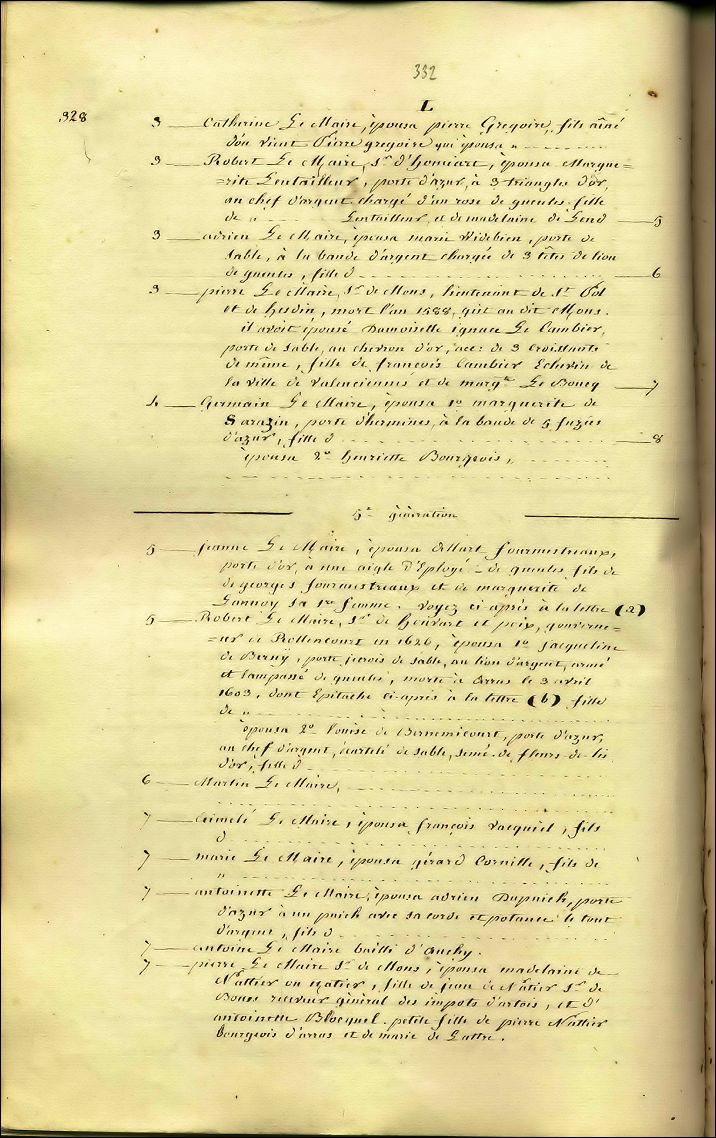 332
L
328
3 Catherine Le Maire, épousa pierre Gregoire, fils aîné
d'ou vient Pierre gregoire qui épousa "
3 Robert Le Maire, Sr d'homiart, épousa Margue=
=rite Lentailleur, porte d'azur, à 3 triangles d'or,
au chef d'argent chargé d'un rose de gueules fille
de " Lentailleur, et de madelaine de Gend 5
3 adrien Le Maire, épousa marie Widebien, porte de
sable, à la bande d'argent chargée de 3 têtes de lion
de gueules, fille d 6
3 pierre Le Maire, Sr de Mons, lieutenant de St Pol
et de hesdin, mort l'an 1588, git au dit Mons.
il avoit épousé Damoiselle ignace Le Cambier,
porte de sable, au chevron d'or, acc: de 3 croissants
de même, fille de françois Cambier Echevin de
la ville de Valenciennes et de margte Le Boucq 7
4 Germain Le Maire, épousa 1o marguerite de
Sarazin, porte d'hermines, à la bande de 5 fuzées
d'azur, fille d 8
épousa 2o henriette Bourgeois,
5e génération
5 Jeanne Le Maire, épousa Allart fourmestreaux,
porte d'or, à une aigle d'Eployé de gueules fils de
de georges fourmestreaux et de marguerite de
Lannoy sa 1re femme. voyez ci après à la lettre (a)
5 Robert Le Maire, Sr de houvart et poix, gouverne=
=ur de Rollencourt en 1626, épousa 1o Jacqueline
de Bernÿ, porte de sable, au lion d'argent, armé
et lampassé de gueules, morte à Arras le 3 avril
1603, dont Epitache ci-après à la lettre (b) fille
de "
épousa 2o louise de Bernemicourt, porte d'azur,
au chef d'argent, écartelé de sable, semé de fleurs de lis
d'or, fille d
6 Martin Le Maire,
7 Le Maire, épousa françois vacquiel, fils
d
7 marie Le Maire, épousa gérard Cornille, fils de
"
7 antoinette Le Maire, épousa adrien Dupuich, porte
d'azur à un puich avec sa corde et potance le tout
d'argent, fils d
7 antoine Le Maire bailli d'Auchy.
7 pierre Le Maire Sr de Mons, épousa madelaine de
Nattier ou Natier, fille de jean de Natier Sr de
receveur général des impots d'artois, et d'
antoinette Blocquel. petite fille de pierre Nattier
bourgeois d'arras et de marie de Lattre.